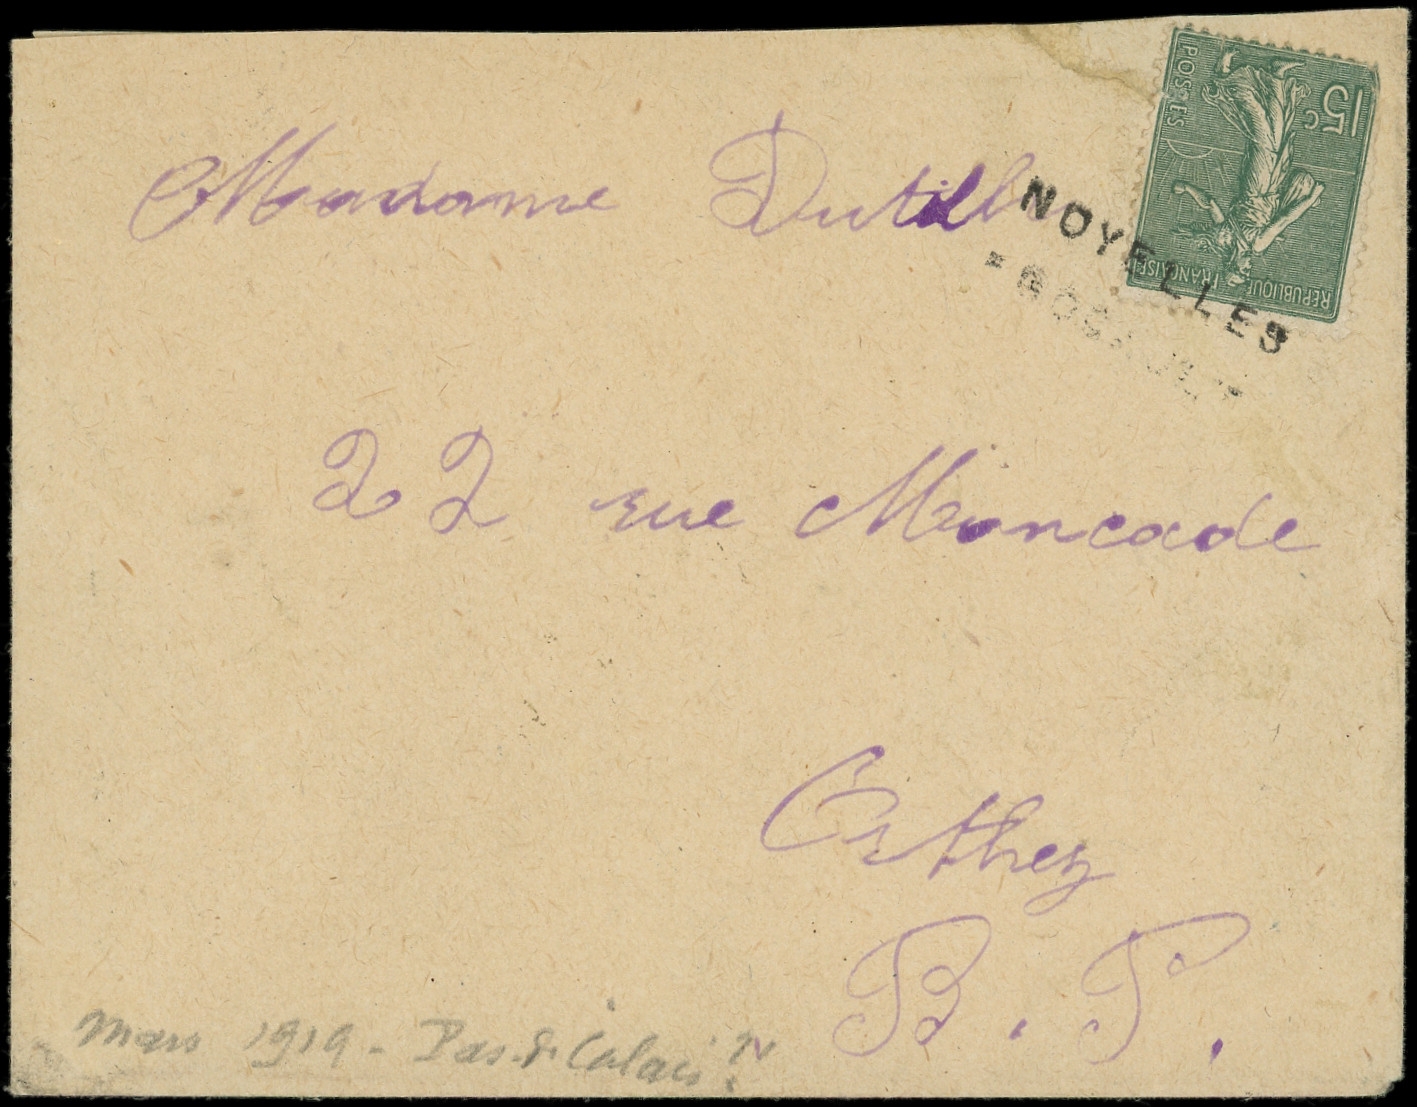 Madame Dutilh
NOYELLES
22 rue Moncade
Orthez
B. P.
Mars 1919 - Pas-de-Calais ?
15c
POSTES
REPUBLIQUE FRANÇAISE